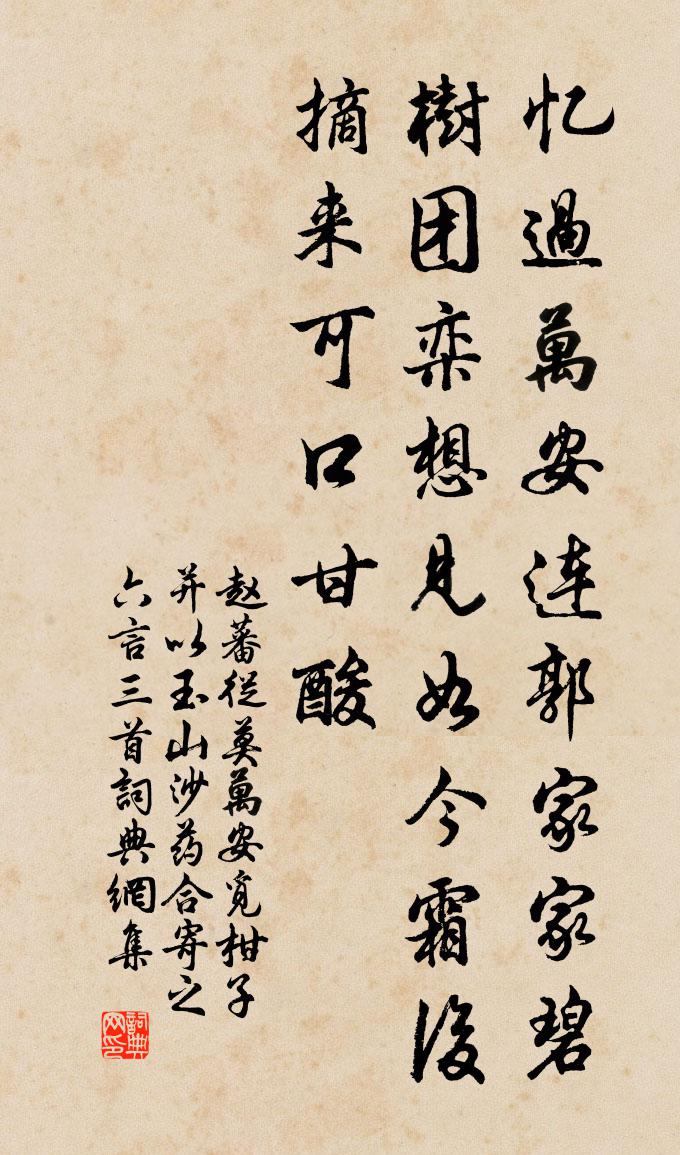 忆過萬安连郭家家碧
樹团栾想見如今霜後
摘来可口甘酸
赵蕃從莫萬安覓柑子
并以玉山沙药合寄之
六言三首詞典網集
詞典网印